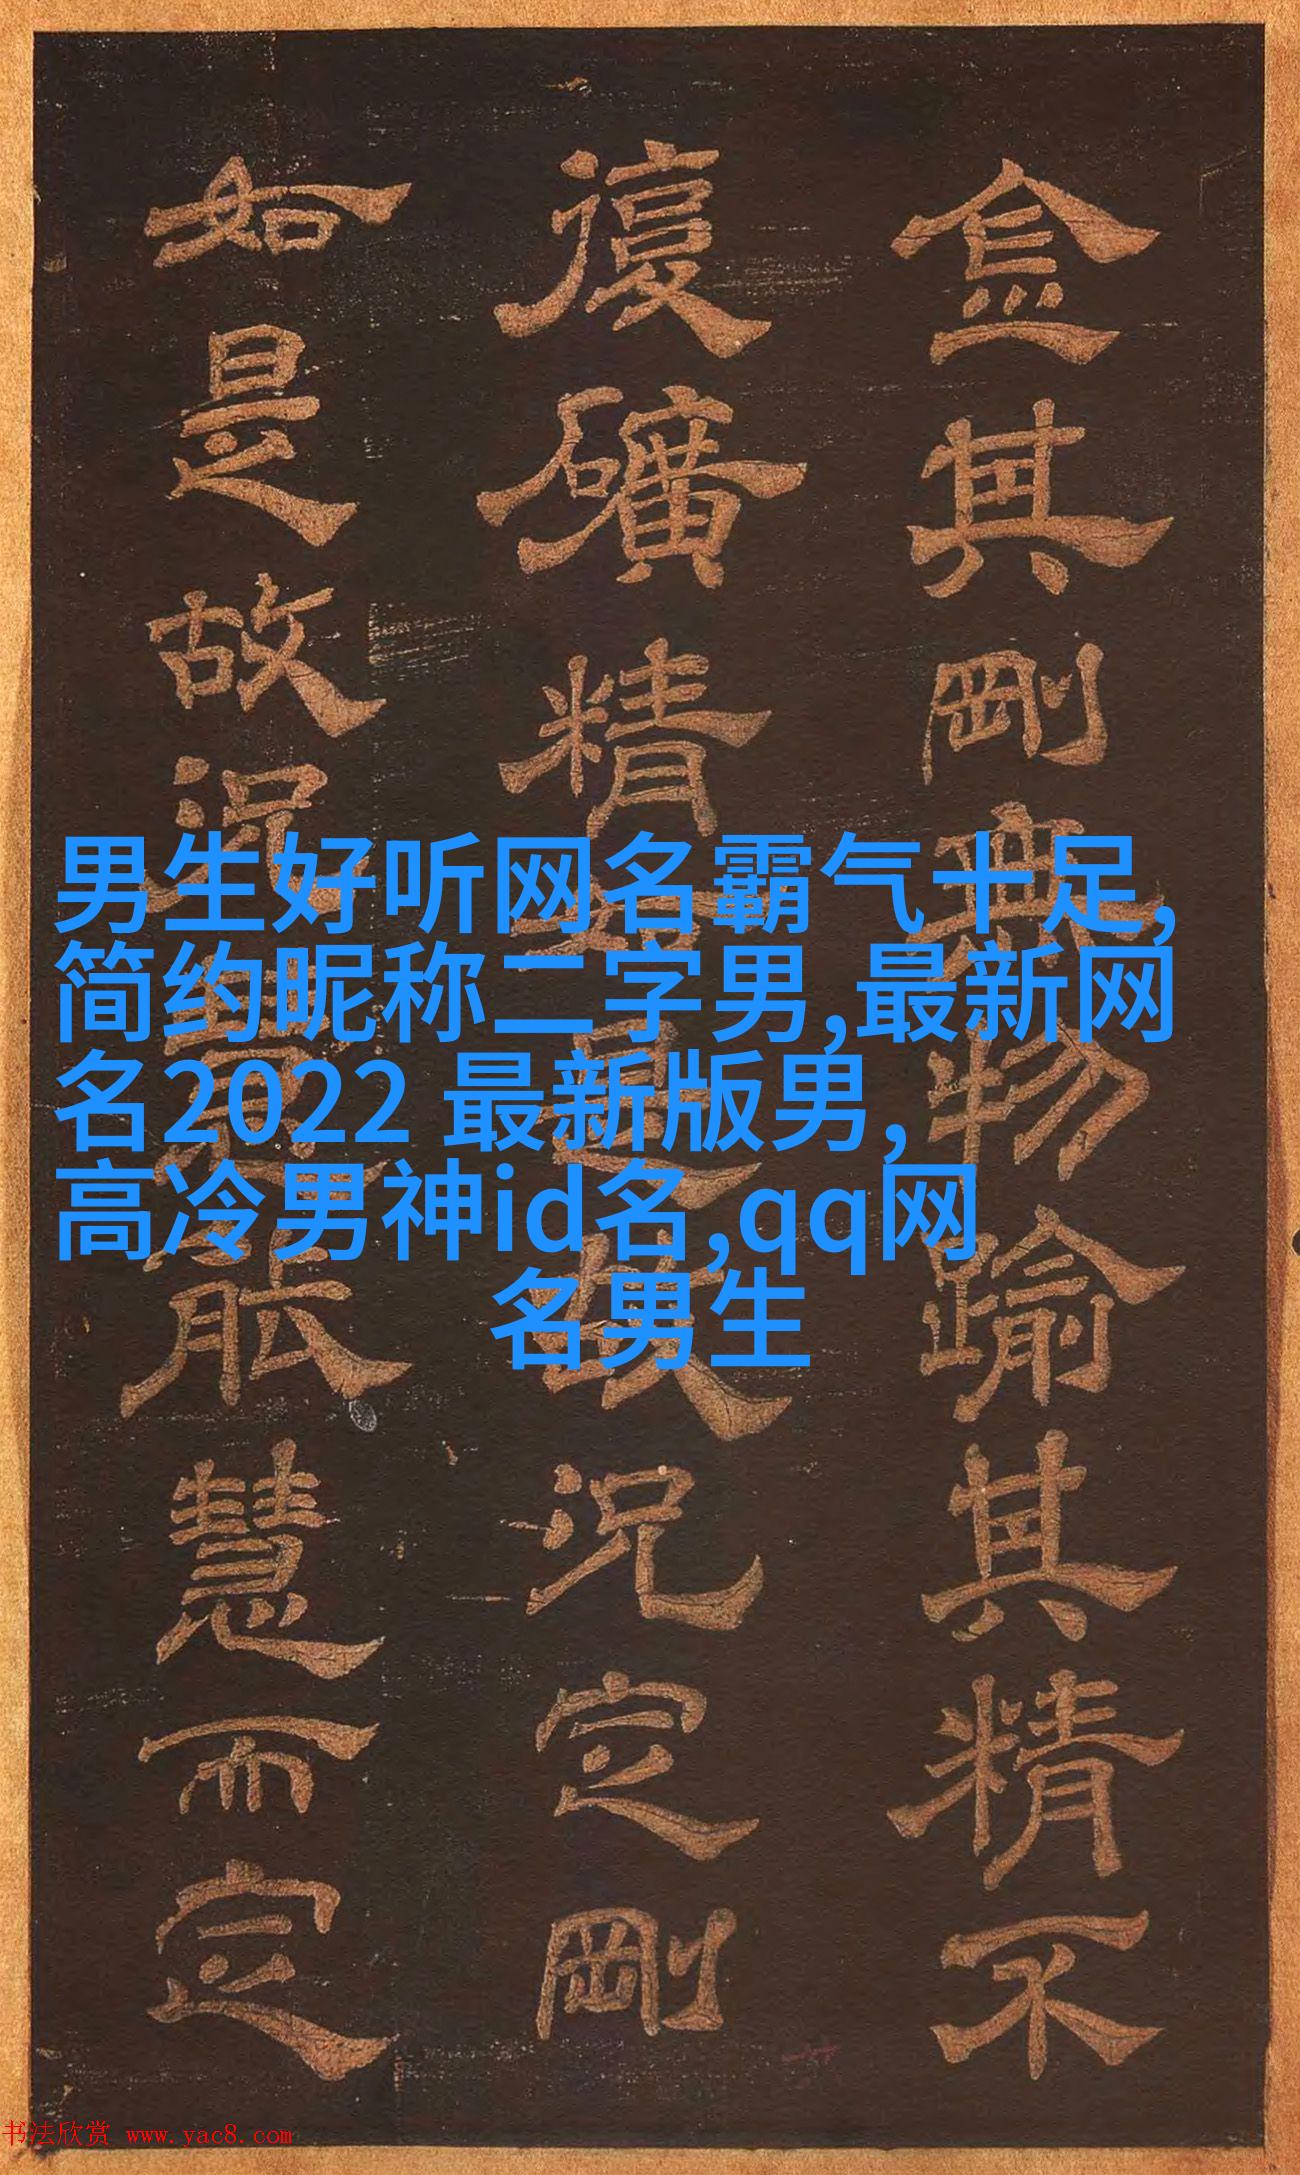 男生好听网名霸气十足,
简约昵称二字男,最新网
名2022 最新版男,
高冷男神id名,qq网
名男生
金其剛無物踰其精不
復礦精是故況定剛
如是故況能慧而定
书法欣赏 www.yac8.com